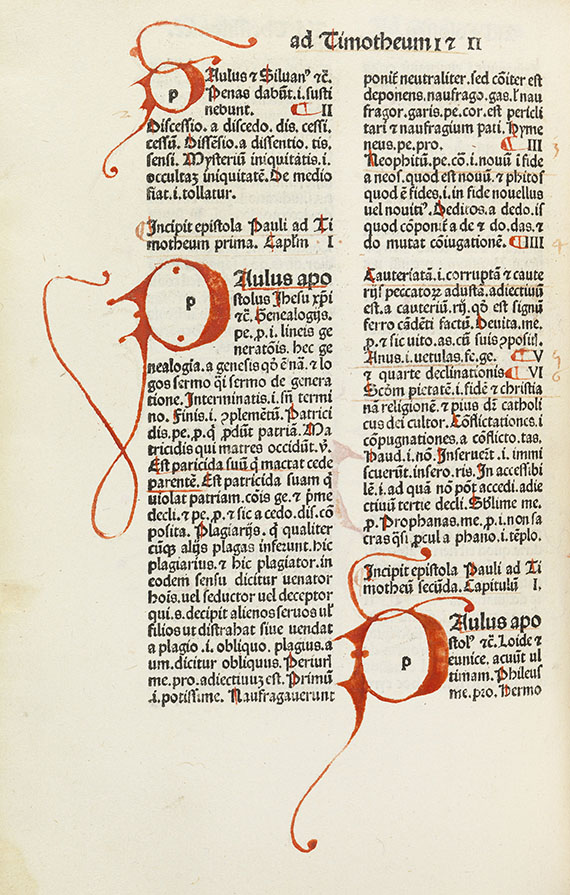 ad Timotheum I ⁊ II
p
Aulus ⁊ Siluanꝰ ⁊c̄.
Penas dabūt .i. susti
nebunt. II
Discessio. a discedo. dis. cessi.
cessū. Dissēsio. a dissentio. tis.
sensi. Mysteriū iniquitatis .i.
occultaꝫ iniquitatē. De medio
fiat .i. tollatur.
Incipit epistola Pauli ad Ti
motheum prima. Caplm̄ I
p
Aulus apo
stolus Jhesu xp̄i
⁊c̄. Genealogijs.
pe. p. i. lineis ge
neratōis. hec ge
nealogia. a genesis qō ē nā. ⁊ lo
gos sermo q̄i sermo de genera
tione. Interminatis .i. sn̄ termi
no. Finis .i. ꝯplemētū. Patrici
dis. pe. p. q̄ ꝓdūt patriā. Ma
tricidis qui matres occidūt. ꝟ.
Est paricida suū q̄ mactat cede
parentē. Est patricida suam q̄
violat patriam. cōis ge. ⁊ p̄me
decli. ⁊ pe. p. ⁊ sic a cedo. dis. cō
posita. Plagiarijs. q̄ qualiter
cūqꝫ alijs plagas inferunt. hic
plagiarius. ⁊ hic plagiator. in
eodem sensu dicitur venator
hoīs. vel seductor vel deceptor
qui. s. decipit alienos seruos ul̄
filios ut distrahat siue vendat
a plagio .i. obliquo. plagius. a
um. dicitur obliquus. Periuri
me. pro. adiectiuuꝫ est. Primū
.i. potissime. Naufragauerunt
ponit̄ neutraliter. sed cōiter est
deponens. naufrago. gas. l̄ nau
fragor. garis. pe. cor. est pericli
tari ⁊ naufragium pati. Hyme
neus. pe. pro. III
Neophitū. pe. cō. i. nouū ī fide
a neos. quod est nouū. ⁊ phitos
quod ē fides. i. in fide nouellus
uel nouitꝰ. Deditos. a dedo. is
quod cōponit̄ a de ⁊ do. das. ⁊
do mutat cōiugationē. IIII
Cauteriatā .i. corruptā ⁊ caute
rijs peccatoꝝ adusta. adiectiuū
est. a cauteriū. rij. qō est signū
ferro cādēti factū. Deuita. me.
p. ⁊ sic uito. as. cū suis ꝯpositꝭ.
Anus .i. uetulas. fe. ge. V
⁊ quarte declinationis VI
Scd̄m pietatē .i. fidē ⁊ christia
nā religionē. ⁊ pius dr̄ catholi
cus dei cultor. Cōflictationes .i
cōpugnationes. a conflicto. tas.
Haud .i. nō. Inseruerūt .i. immi
scuerūt. insero. ris. In accessibi
lē .i. ad quā nō pōt accedi. adie
ctiuū tertie decli. Sublime. me.
p. Prophanas. me. p. i. non sa
cras q̄si ꝓcul a phano .i. tēplo.
Incipit epistola Pauli ad Ti
motheū secūda. Capitulū I.
p
Aulus apo
stolꝰ ⁊c̄. Loide ⁊
eunice. acuūt ul
timam. Phileus
me. pro. Hermo